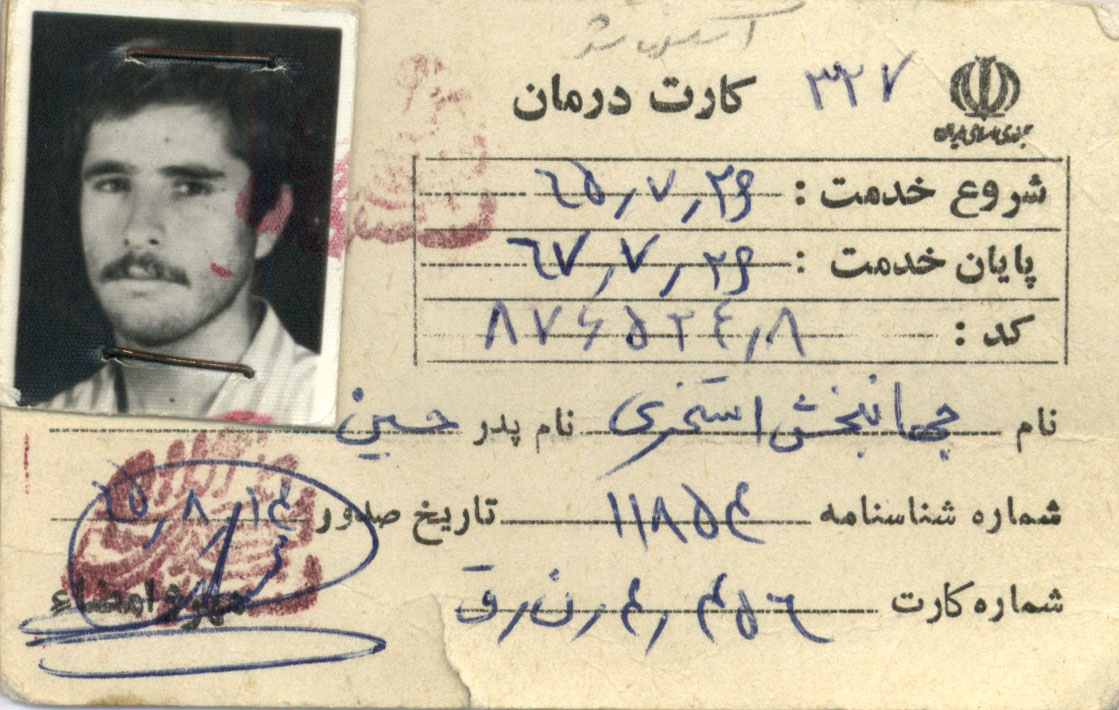 کارت درمان ۳۲۷
جمهوری اسلامی ایران
شروع خدمت : ۶۵٫۷٫۲۶
پایان خدمت : ۶۷٫۷٫۲۶
کد : ۸۷۶۵۲۴٫۸
نام جهانبخش استخری نام پدر حسین
شماره شناسنامه ۱۱۸۵۴ تاریخ صدور ۶۵٫۸٫۱۴
شماره کارت ۴۵۶٫۴٫ن٫ق
مهر و امضاء